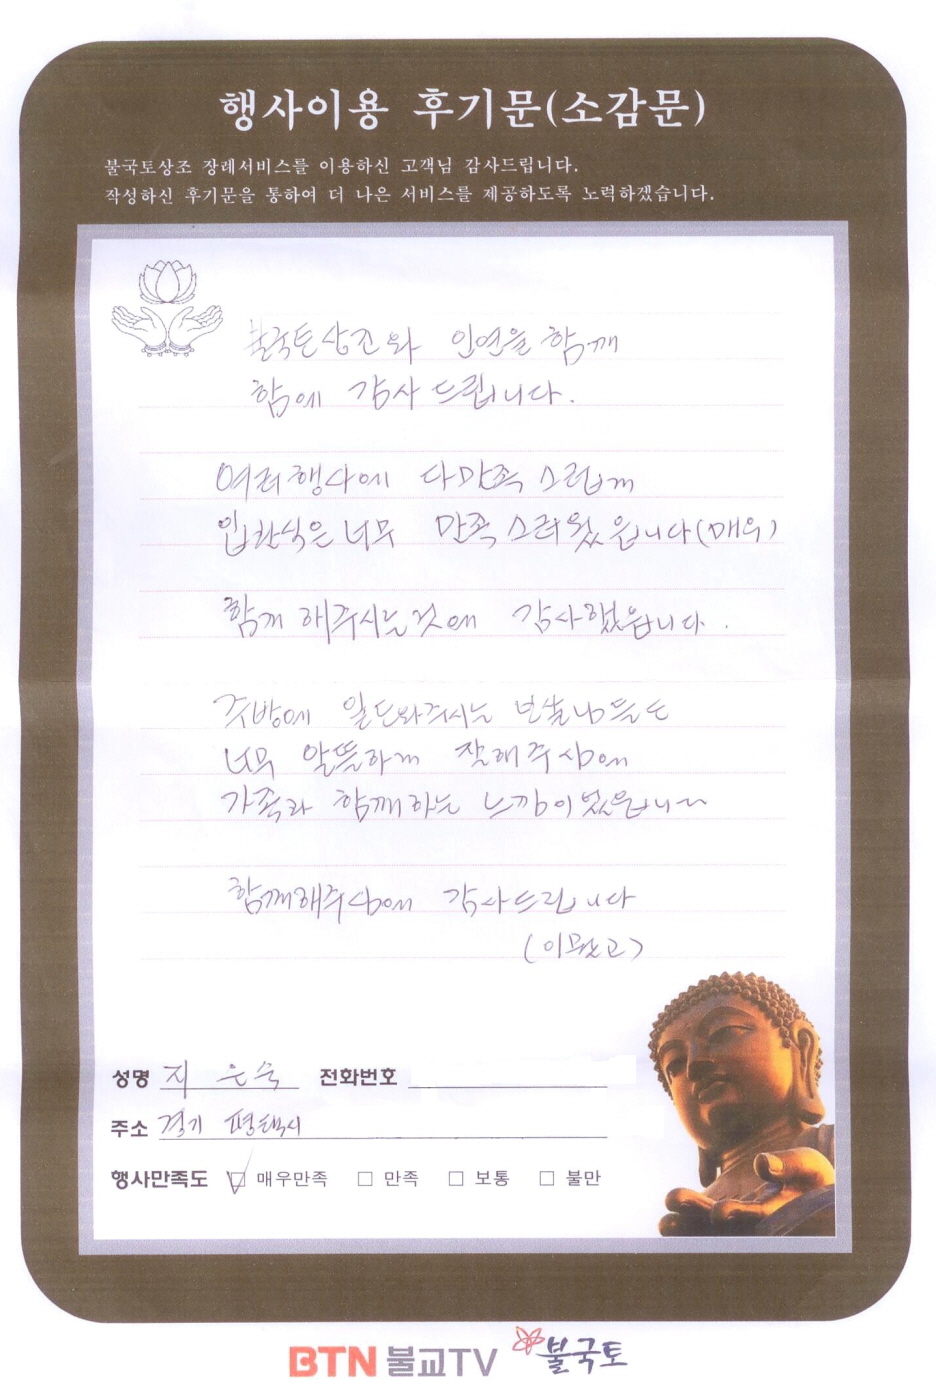 행사이용 후기문(소감문)
불국토상조 장례서비스를 이용하신 고객님 감사드립니다.
작성하신 후기문을 통하여 더 나은 서비스를 제공하도록 노력하겠습니다.
불국토상조와 인연을 함께
함에 감사 드립니다.
여러행사에 다만족 스럽게
입관식은 너무 만족스러웠읍니다(매우)
함께 해주시는것에 감사했읍니다.
주방에 일도와주시는 보살님들도
너무 알뜰하게 잘해주심에
가족과 함께하는 느낌이었읍니다
함께해주심에 감사드립니다
성명 지은숙 전화번호
주소 경기 평택시
행사만족도 매우만족 만족 보통 불만
BTN 불교TV 불국토